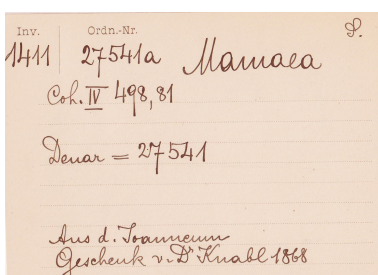 Inv. Ordn.-Nr. S.
1411 27541a Mamaea
Coh. IV 498,81
Denar = 27541
Aus d. Joanneum
Geschenk v. Dr Knabl 1868